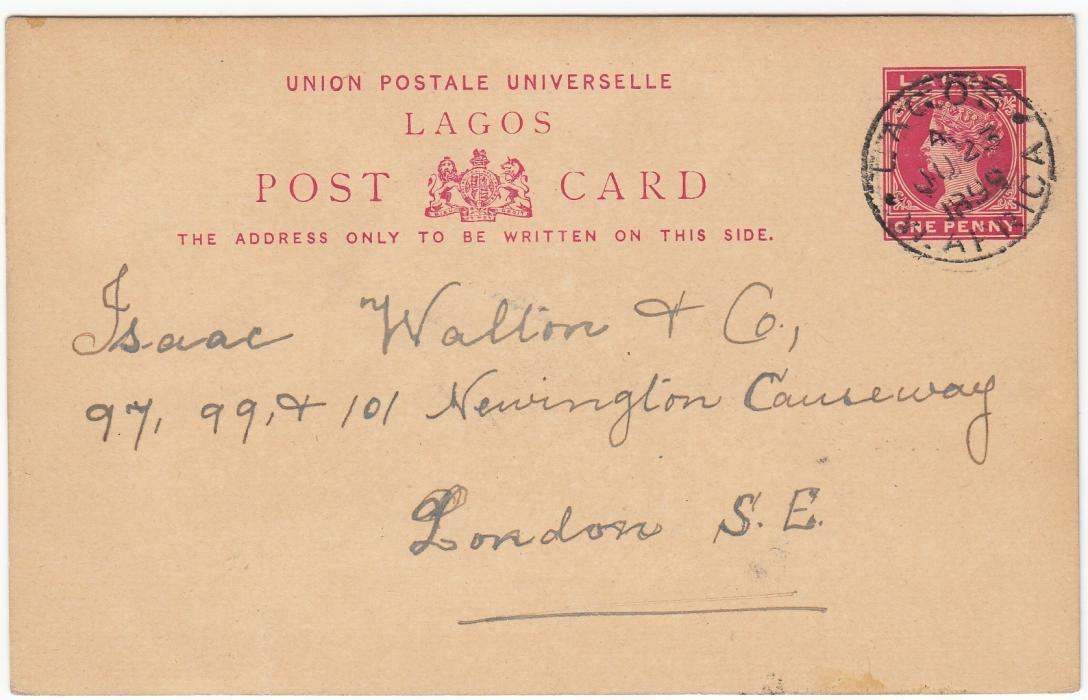 UNION POSTALE UNIVERSELLE
LAGOS
POST CARD
THE ADDRESS ONLY TO BE WRITTEN ON THIS SIDE.
LAGOS
ONE PENNY
LAGOS
W. AFRICA
Isaac Walton & Co.,
97, 99, & 101 Newington Causeway
London S.E.